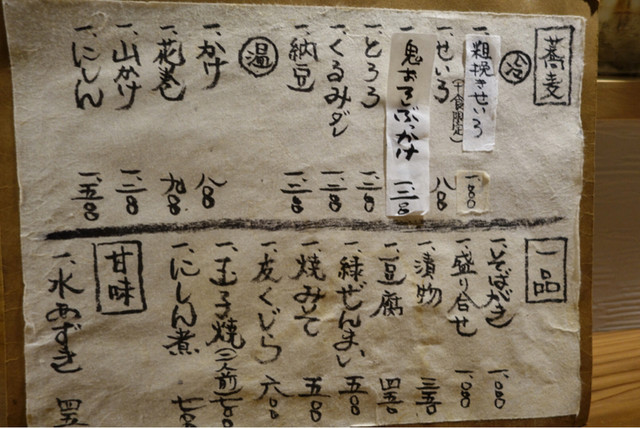 蕎麦
冷
一、粗挽きせいろ 一、〇〇〇
一、せいろ(十食限定) 八〇〇
一、鬼おろしぶっかけ 一、二〇〇
一、とろろ 一、二〇〇
一、くるみダレ 一、二〇〇
一、納豆 一、二〇〇
温
一、かけ 八〇〇
一、花巻 九〇〇
一、山かけ 一、二〇〇
一、にしん 一、五〇〇
一品
一、そばがき 一、〇〇〇
一、盛り合せ 一、〇〇〇
一、漬物 三五〇
一、豆腐 四五〇
一、緑ぜんまい 五〇〇
一、焼みそ 五〇〇
一、皮くじら 六〇〇
一、玉子焼(二人前) 七〇〇
一、にしん煮 七〇〇
甘味
一、水あずき